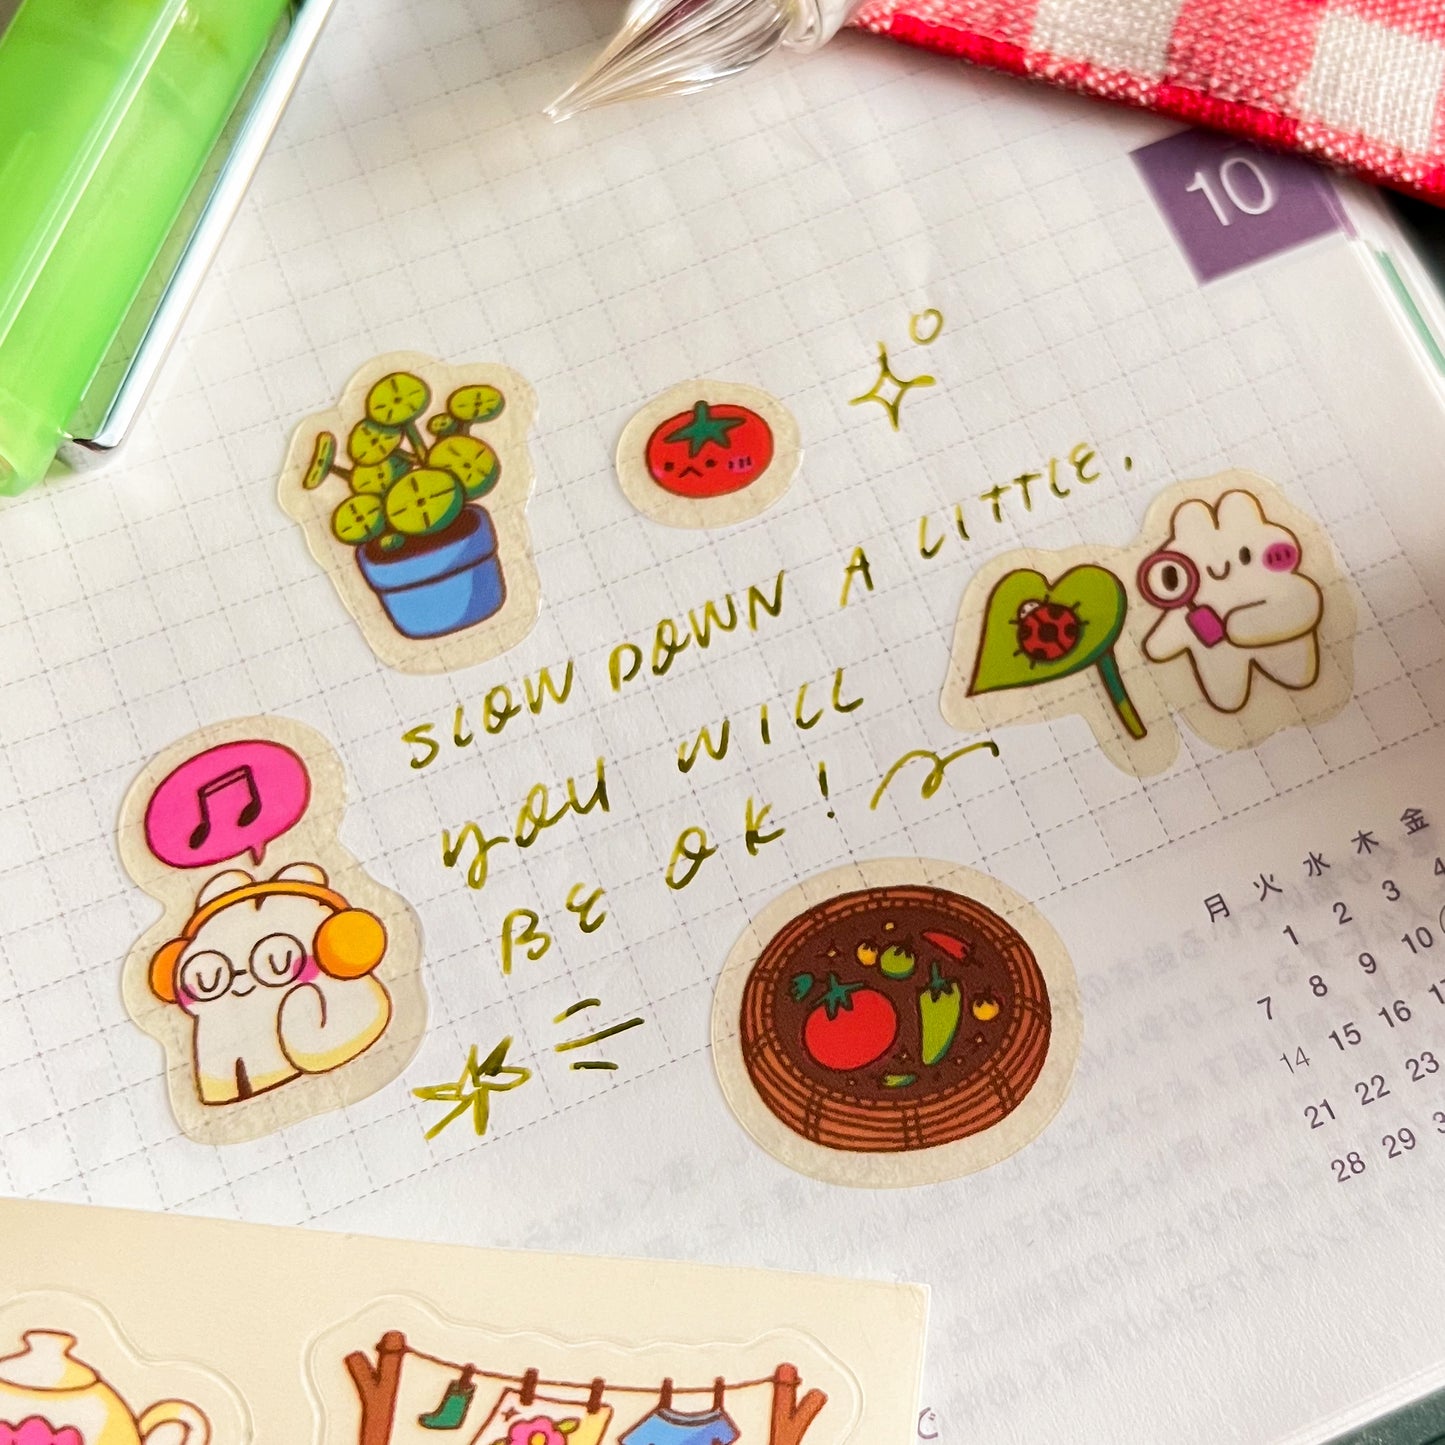 10
SLOW DOWN A LITTLE,
YOU WILL
BE OK!
月 火 水 木 金
1 2 3 4
7 8 9 10
14 15 16
21 22 23
28 29
で